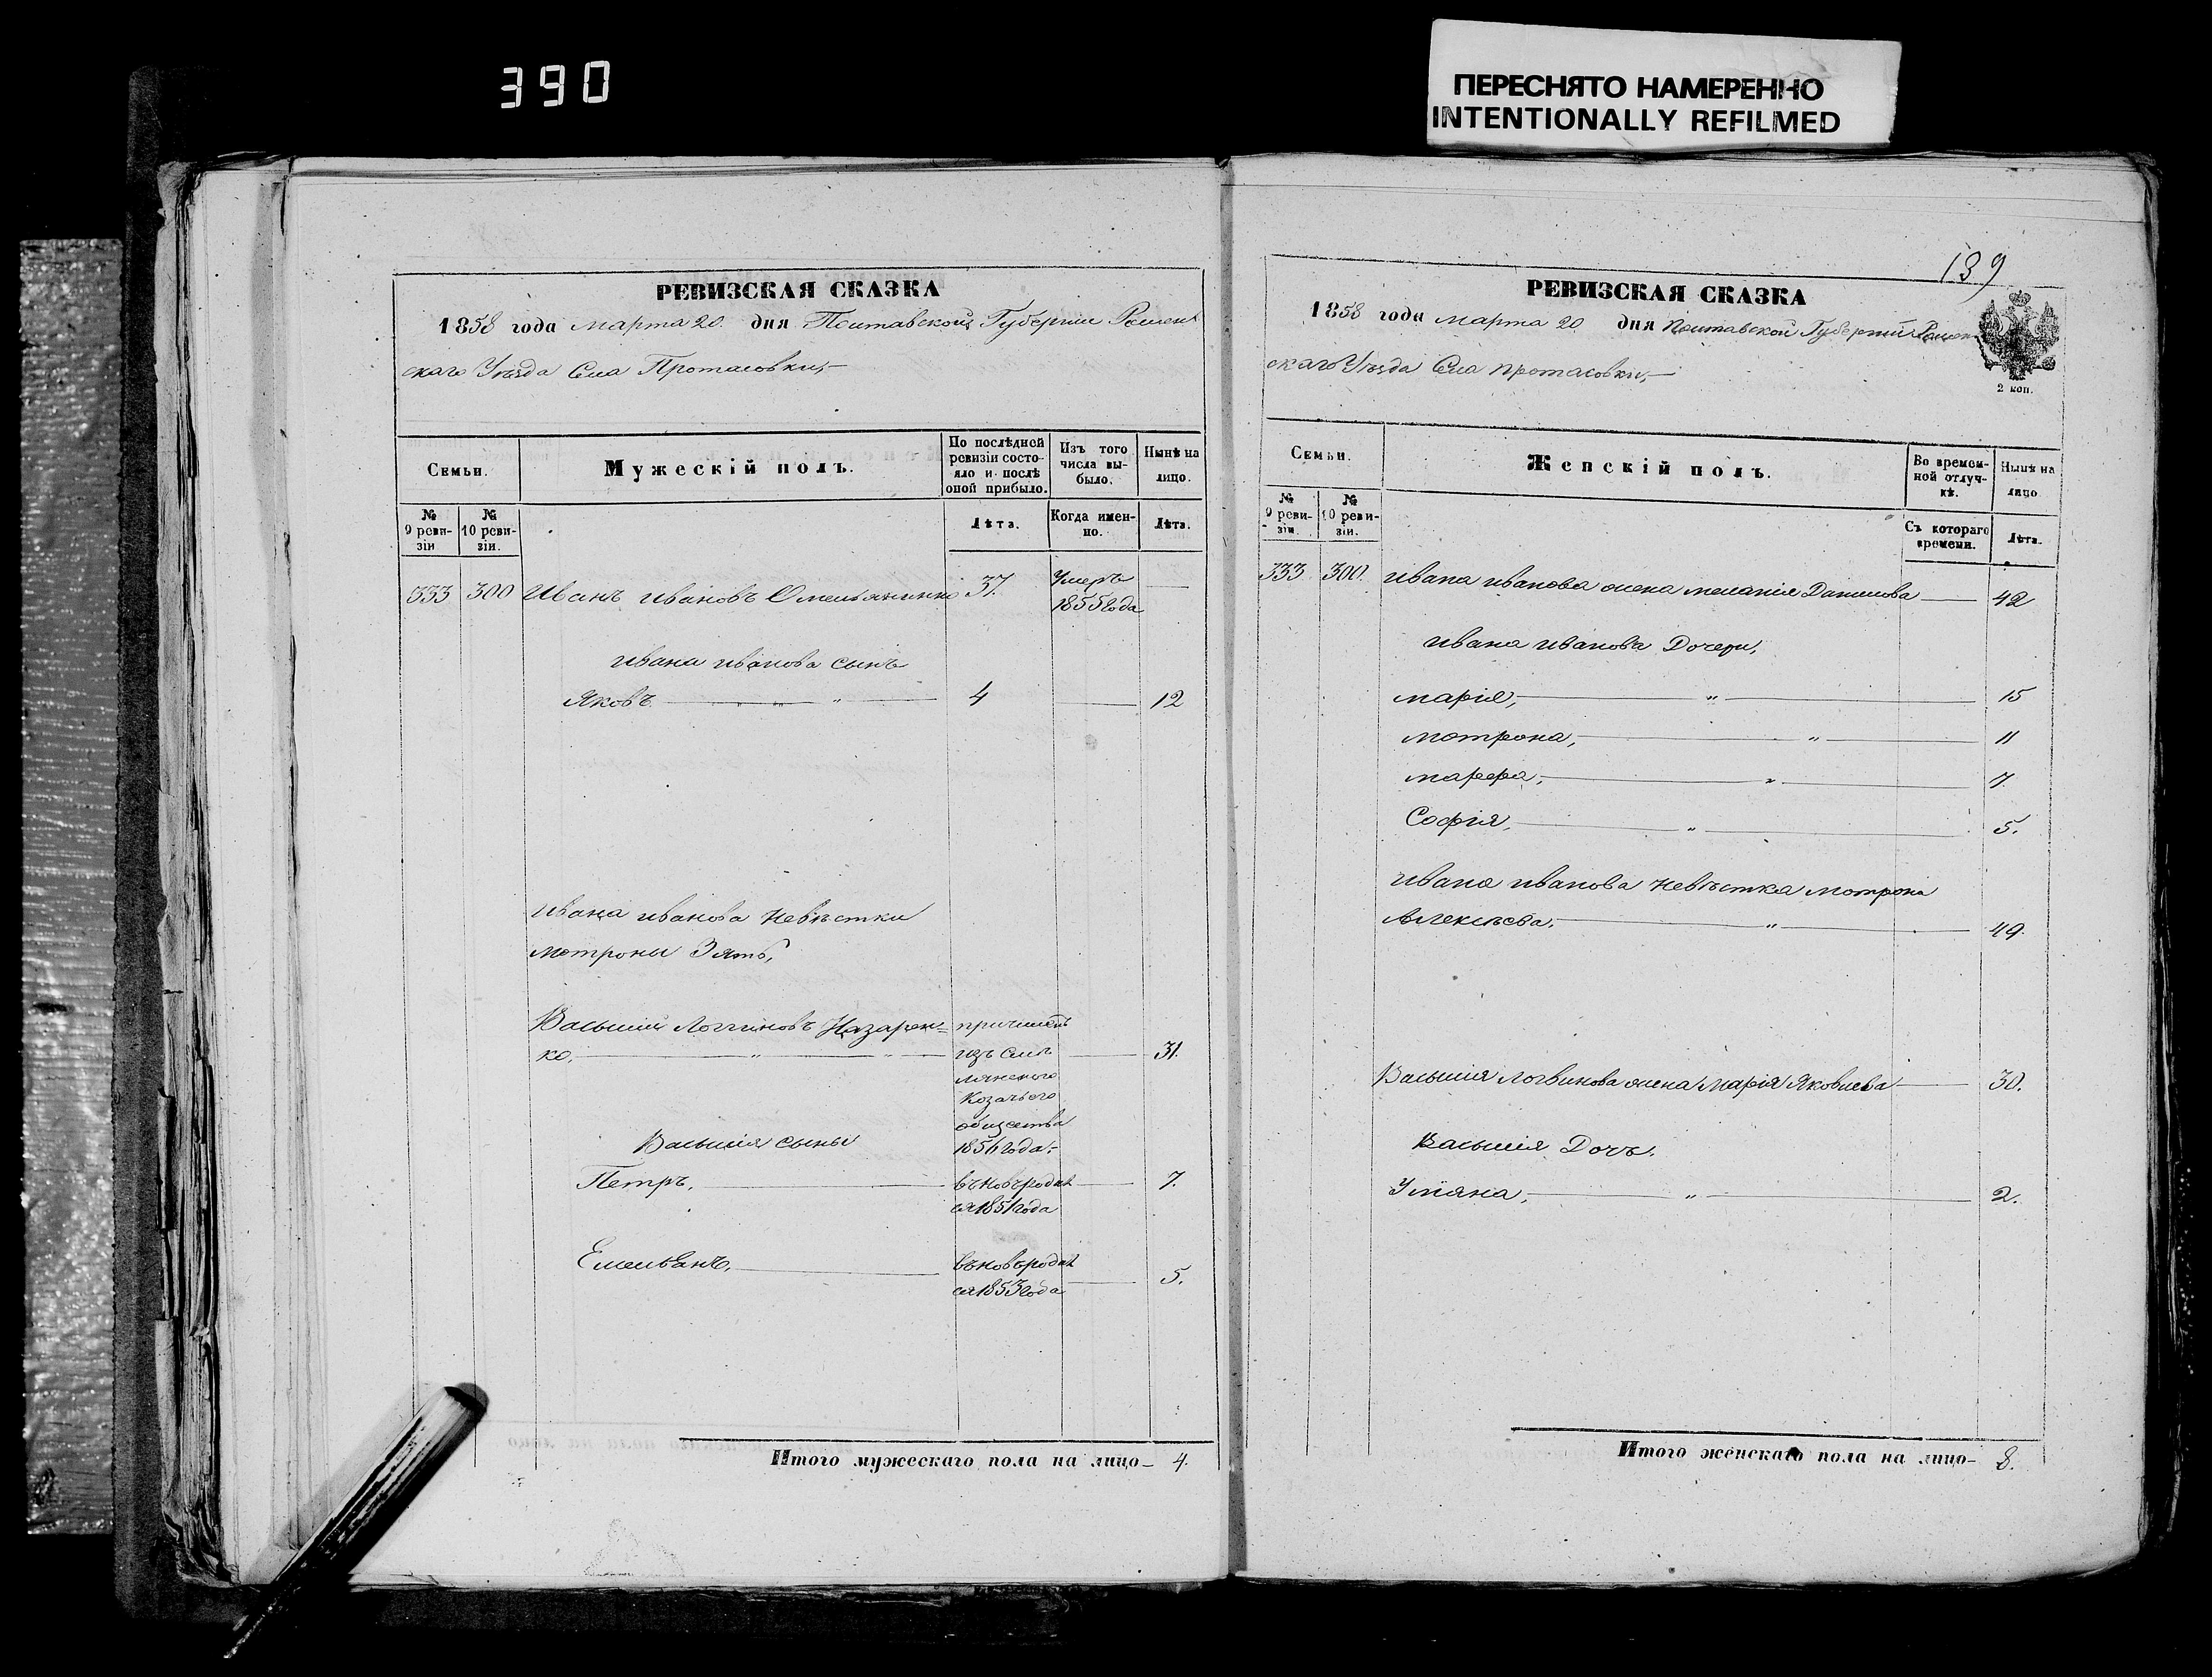 390
ПЕРЕСНЯТО НАМЕРЕННО
INTENTIONALLY REFILMED
РЕВИЗСКАЯ СКАЗКА
1858 года марта 20 дня Полтавской Губернии Ромен
скаго Уѣзда Села Протасовки,
Семьи.
Мужескій полъ.
По послѣдней ревизіи состо-
яло и послѣ
оной прибыло.
Изъ того
числа вы-
было.
Нынѣ на
лицо.
№
9 реви-
зіи
№
10 реви-
зіи.
Лѣта.
Когда имен-
но.
Лѣта.
333 300 Иванъ Ивановъ Омельяненко 37. Умеръ
1855 года
Ивана Иванова сынъ
Яковъ 4 12
Ивана Иванова невѣстки
Мотроны Зять,
Василий Логгиновъ Назарен=
ко, 31.
причислен
изъ Смѣ
лянского
Козачьего
общества
1856 года.
Василия сыны
Петръ, вновьродил 7.
ся 1851 года
Емельянъ, вновьродил 5.
ся 1853 года
Итого мужескаго пола на лицо 4.
139
РЕВИЗСКАЯ СКАЗКА
1858 года марта 20 дня Полтавской Губерніи Ромен
скаго Уѣзда Села Протасовки,
2 коп.
Семьи.
Женскій полъ.
Во времен-
ной отлуч-
кѣ.
Нынѣ на
лицо
№
9 реви-
зіи.
№
10 реви-
зіи.
Съ котораго
времени.
Лѣта.
333 300. Ивана Иванова жена Меланія Данилова 42
Ивана Иванова Дочери,
Марія, 15
Мотрона, 11
Марфа, 7.
Софія, 5.
Ивана Иванова невѣстка Мотрона
Алексѣева, 49.
Василія Логвинова жена Марія Яковлева 30.
Василія Дочь.
Уліяна, 2.
Итого женскаго пола на лицо 8.